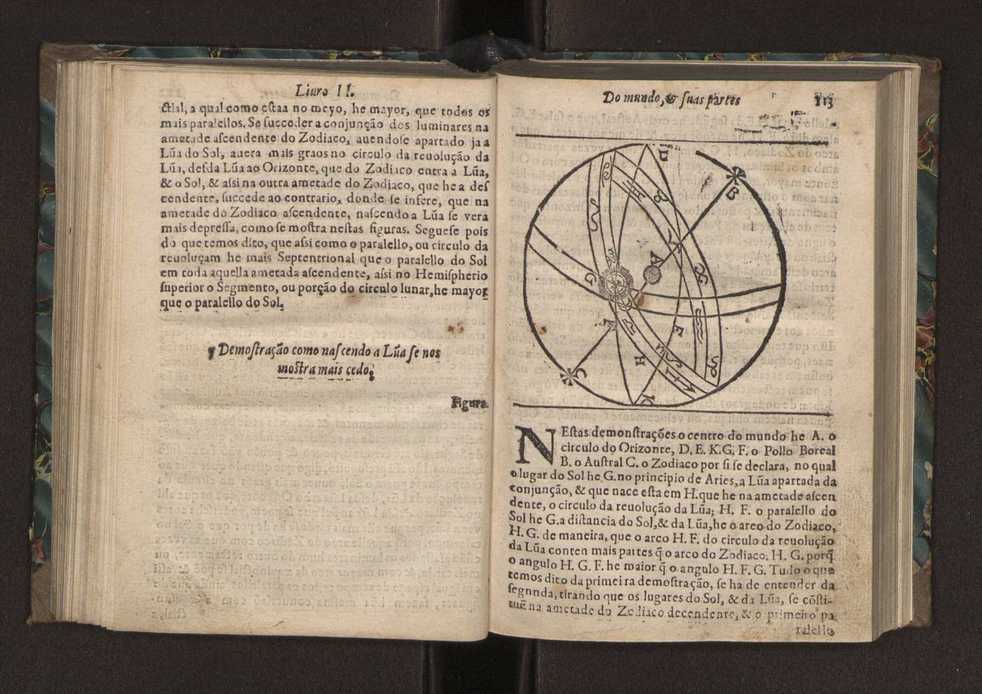 Liuro II.
ctial, a qual como estaa no meyo, he mayor, que todos os
mais paralellos. Se succeder a conjunção dos luminares na
ametade ascendente do Zodiaco, auendose apartado ja a
Lũa do Sol, auera mais graos no circulo da reuolução da
Lũa, desda Lũa ao Orizonte, que do Zodiaco entra a Lũa,
& o Sol, & assi na outra ametade do Zodiaco, que he a des
cendente, succede ao contrario, donde se infere, que na
ametade do Zodiaco ascendente, nascendo a Lũa se vera
mais depressa, como se mostra nestas figuras. Seguese pois
do que temos dito, que assi como o paralello, ou circulo da
reuoluçam he mais Septentrional que o paralello do Sol
em toda aquella ametada ascendente, assi no Hemispherio
superior o Segmento, ou porção do circulo lunar, he mayor
que o paralello do Sol.
¶ Demostração como nascendo a Lũa se nos
mostra mais cedo,
Figura.
Do mundo, & suas partes 113
D
B
A
G
L
F
E
H
C
K
NEstas demonstrações o centro do mundo he A. o
circulo do Orizonte, D. E. K. G. F. o Pollo Boreal
B. o Austral C. o Zodiaco por si se declara, no qual
o lugar do Sol he G. no principio de Aries, a Lũa apartada da
conjunção, & que nace esta em H. que he na ametade ascen
dente, o circulo da reuolução da Lũa; H. F. o paralello do
Sol he G. a distancia do Sol, & da Lũa, he o arco do Zodiaco,
H. G. de maneira, que o arco H. F. do circulo da reuolução
da Lũa conten mais partes q̃ o arco do Zodiaco, H. G. porq̃
o angulo H. G. F. he maior q̃ o angulo H. F. G. Tudo o que
temos dito da primeira demostração, se ha de entender da
segnnda, tirando que os lugares do Sol, & da Lũa, se cõsti-
tuẽ na ametade do Zodiaco decendente, & o primeiro pa
ralello